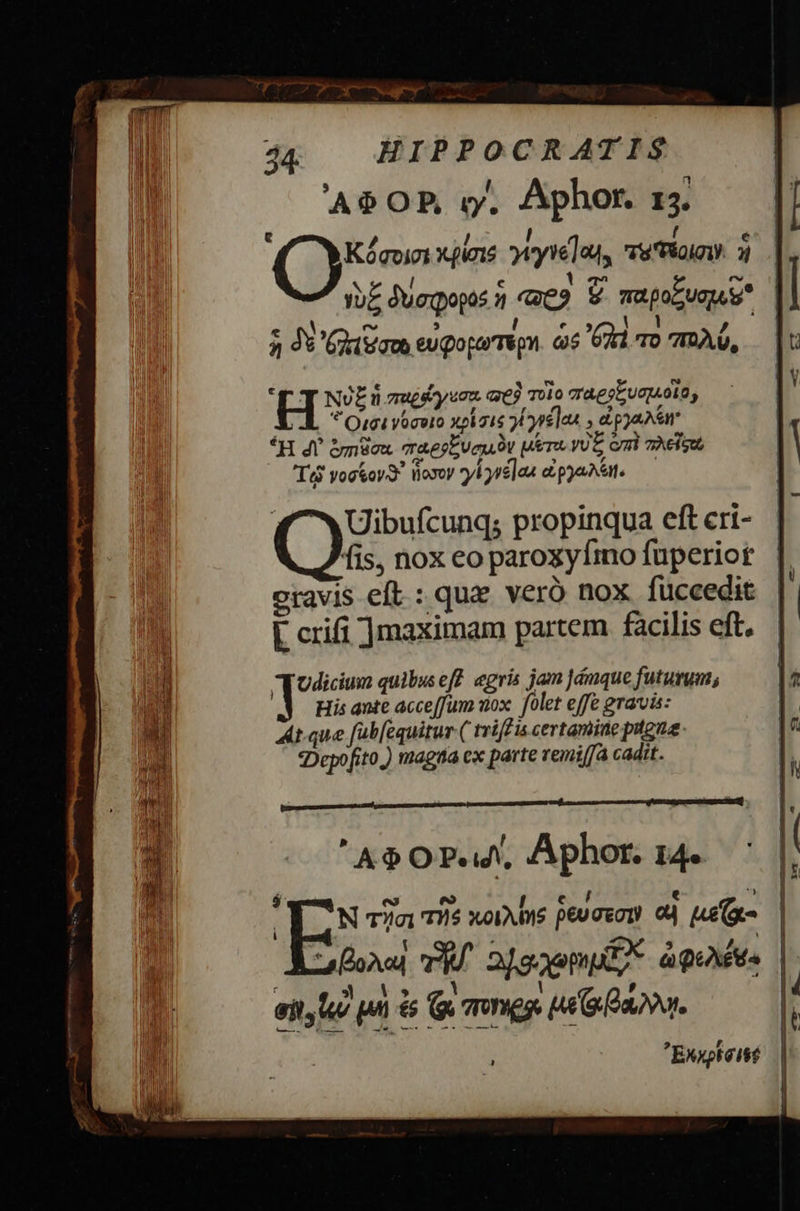 34 HIPPOCRATIS
ἈΦΟΡ. ιγ΄. Aphor. 13.
Ὁκόσοισι κρίσις γίγνεται, τουτέοισιν ἡ
νὺξ δύσφορος ἡ πρὸ τοῦ παροξυσμοῦ·
ἡ δὲ ἐπιοῦσα εὐφορωτέρη ὡς ἐπὶ τὸ πολύ,
Ἡ Νὺξ ἡ παρέγγυσα πρὸ τοῖο παροξυσμοῖο,
Οἷσι νόσοιο κρίσις γίγνεται, ἀργαλέη·
Ἡ δ' ὀπιοῦσα παροξυσμὸν μέτα νὺξ ἐπὶ πλεῖστα
Τῷ νοσέονθ' ἧσσον γίγνεται ἀργαλέη.
QUibuscunq; propinqua est cri-
sis, nox eo paroxysmo superior
gravis est : quæ verò nox succedit
[ crisi ] maximam partem facilis est.
JUdicium quibus est ægris jam jámque futurum,
His ante accessum nox solet esse gravis:
At quæ subsequitur ( tristis certamine pugnæ
Deposito ) magna ex parte remissa cadit.
ἈΦΟΡ. ιδ΄. Aphor. 14.
ἘΝ τῇσι τῆς κοιλίης ῥεύσεσιν αἱ μετα-
βολαὶ τῶν διαχωρημάτων ὠφελέου-
σιν, ἢν μὴ ἐς τὰ πονηρὰ μεταβάλλῃ.
Ἐκκρίσιες